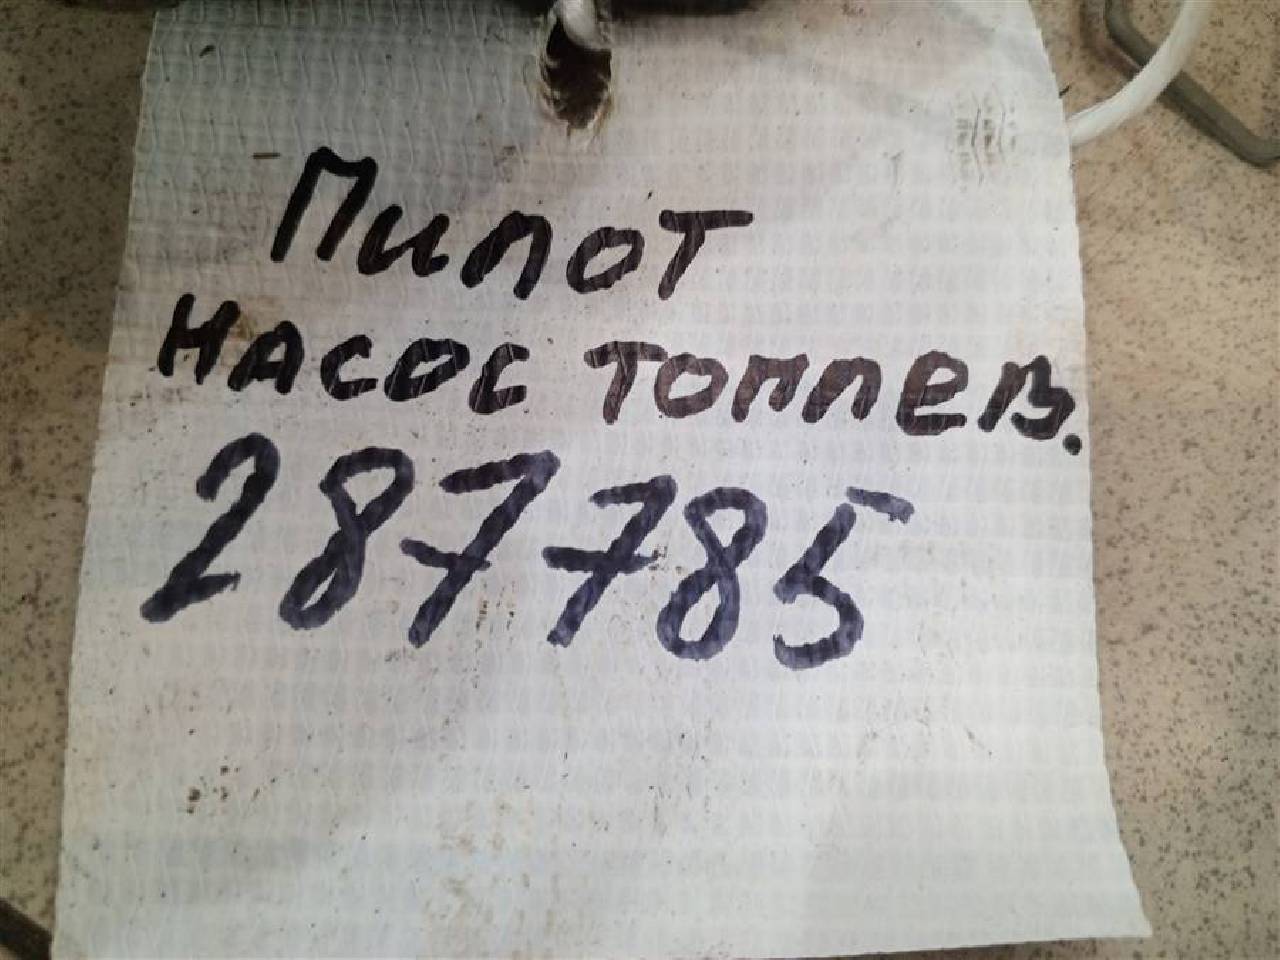 Пилот
насос топлев.
287785